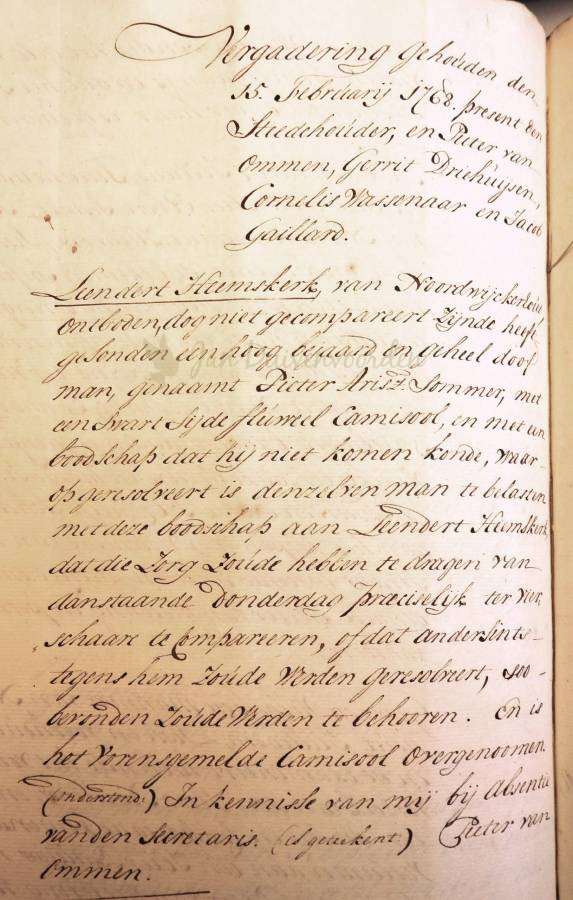 Vergadering gehouden den
15. Februarij 1768. present den
Steedehouder, en Pieter van
Ommen, Gerrit Driehuijsen,
Cornelis Wassenaar en Jacob
Gaillard.
Leendert Heemskerk, van Noordwijckerhout
ontboden, dog niet gecompareert Zijnde heeft
gesonden een hoog bejaard en geheel doof
man, genaamt Pieter Arisz. Sommer, met
een Swart Sijde fluweel Camisool, en met een
boodschap dat hij niet komen konde, waar-
op geresolveert is denzelven man te belasten
met deze boodschap aan Leendert Heemskerk
dat die Zorg Zoude hebben te dragen van
aanstaande Donderdag præciselijk ter vier-
schaare te Compareeren, of dat andersints
tegens hem Zoude Werden geresolveert, soo-
bevonden Zoude Werden te behooren. En is
het Vorensgemelde Camisool Overgenoomen.
(onderstond:) In kennisse van mij bij Absentie
van den Secretaris. (es getekent) Pieter van
Ommen.